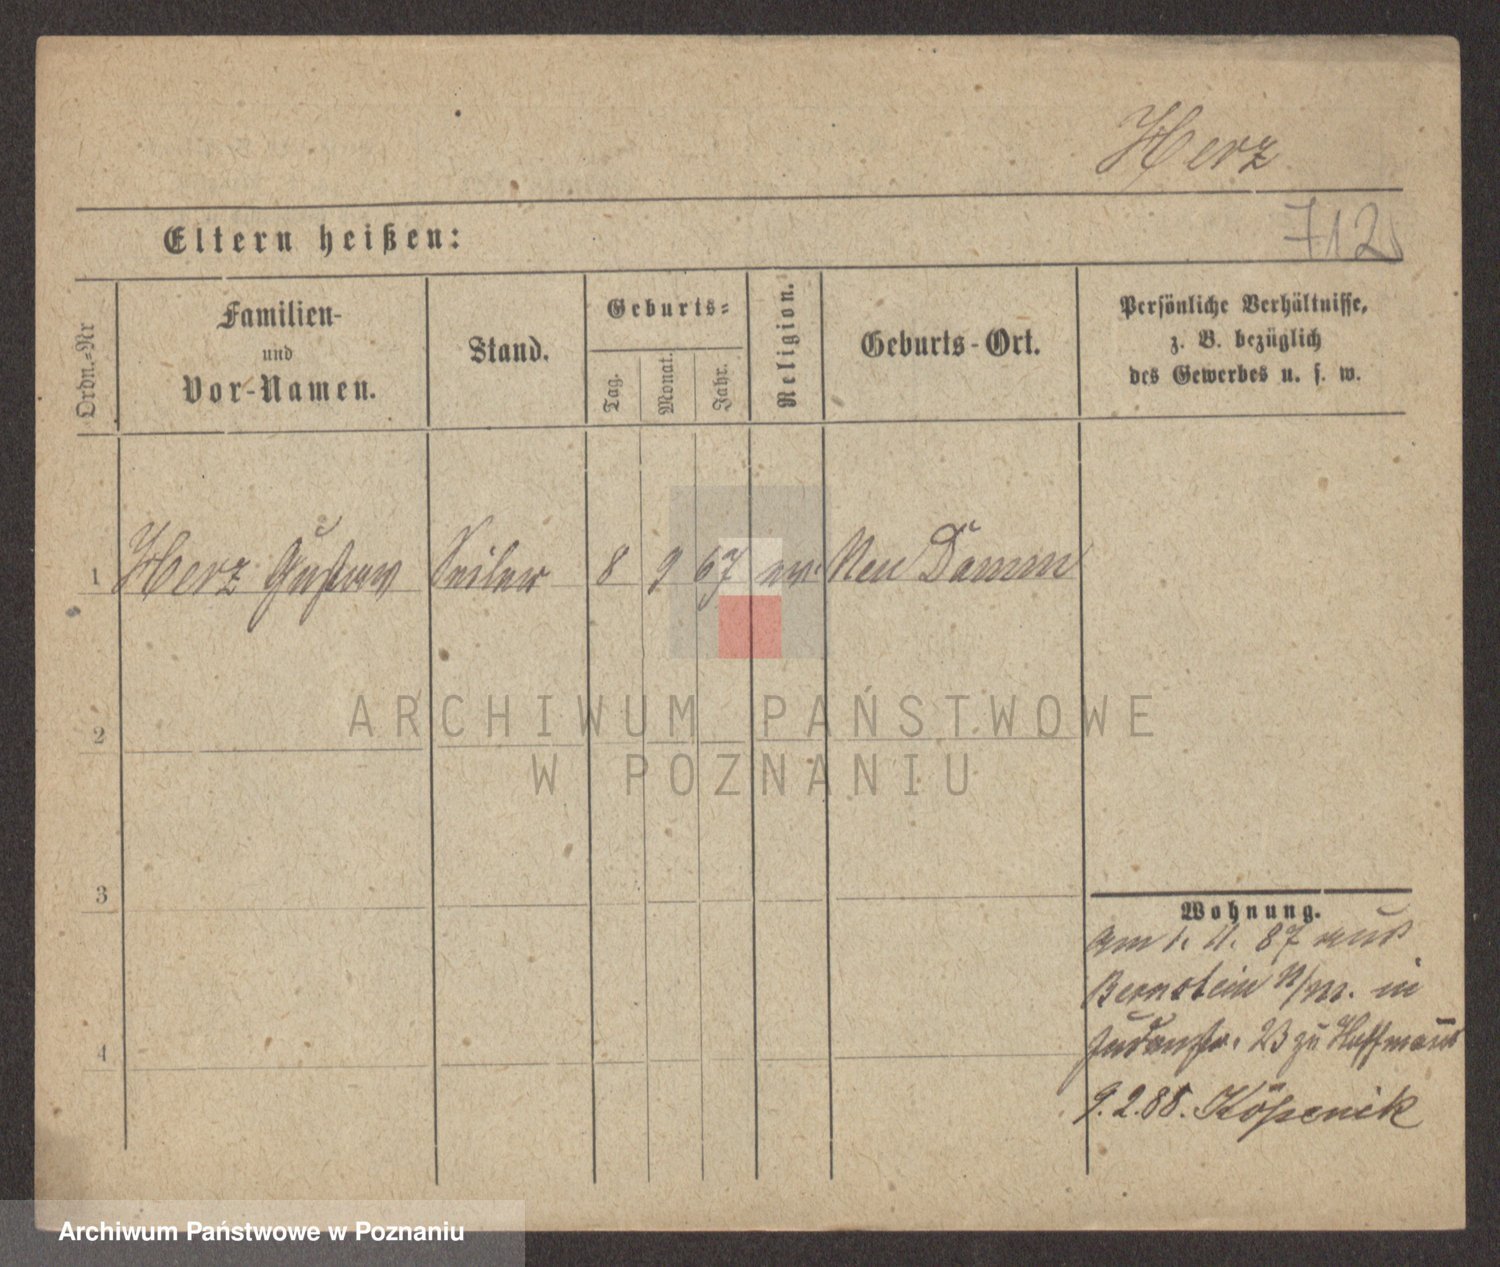 Herz
712
Eltern heißen:
Ordn.-Nr
Familien-
und
Vor-Namen.
Stand.
Geburts-
Tag.
Monat.
Jahr.
Religion.
Geburts-Ort.
Persönliche Verhältnisse,
z. B. bezüglich
des Gewerbes u. s. w.
1 Herz Gustav Seiler 8 9 67 ev. Neu Damm
2
3
4
Wohnung.
am 1. 11. 87 aus
Bernstein N/M. in
Judenstr. 23 zu Hoffmann
9.2.88. Köpenick
ARCHIWUM PAŃSTWOWE
W POZNANIU
Archiwum Państwowe w Poznaniu